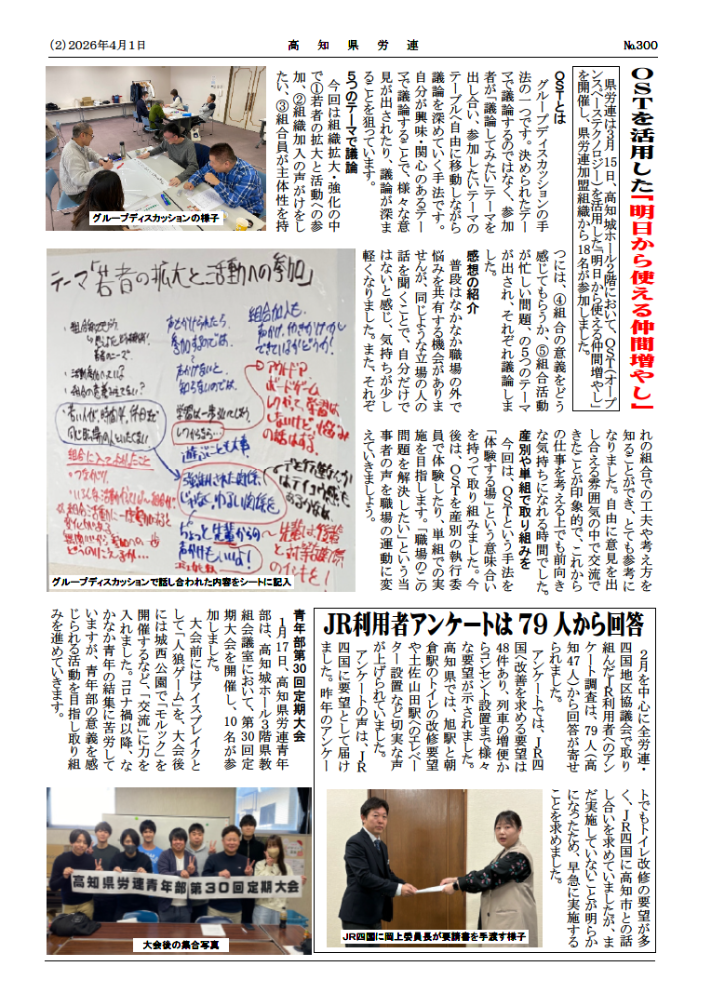 (2) 2026年4月1日
高知県労連
№300
OSTを活用した『明日から使える仲間増やし』
県労連は3月15日、高知城ホール2階において、OST(オープ
ンスペーステクノロジー)を活用した「明日から使える仲間増やし」
を開催し、県労連加盟組織から18名が参加しました。
OSTとは
グループディスカッションの手
法の一つです。決められたテー
マで議論するのではなく、参加
者が「議論してみたい」テーマを
出し合い、参加したいテーマの
テーブルへ自由に移動しながら
議論を深めていく手法です。
自分が興味・関心のあるテー
マで議論することで、様々な意
見が出されたり、議論が深ま
ることを狙っています。
5つのテーマで議論
今回は組織拡大・強化の中
で①若者の拡大と活動への参
加、②組織加入の声がけをし
たい、③組合員が主体性を持
グループディスカッションの様子
つには、④組合の意義をどう
感じてもらうか、⑤組合活動
が忙しい問題、の5つのテーマ
が出され、それぞれ議論しま
した。
感想の紹介
普段はなかなか職場の外で
悩みを共有する機会がありま
せんが、同じような立場の人の
話を聞くことで、自分だけで
はないと感じ、気持ちが少し
軽くなりました。また、それぞ
れの組合での工夫や考え方を
知ることができ、とても参考に
なりました。自由に意見を出
し合える雰囲気の中で交流で
きたことが印象的で、これから
の仕事を考える上でも前向き
な気持ちになれる時間でした。
産別や単組で取り組みを
今回は、OSTという手法を
「体験する場」という意味合い
を持って取り組みました。今
後は、OSTを産別の執行委
員で体験したり、単組での実
施を目指します。「職場のこの
問題を解決したい」という当
事者の声を職場の運動に変
えていきましょう。
テーマ「若者の拡大と活動への参加」
組合加入も
声かけ、
遊ぶことも大事
組合に入ってよかったこと
つながり
グループディスカッションで話し合われた内容をシートに記入
JR利用者アンケートは79人から回答
2月を中心に全労連・
四国地区協議会で取り
組んだJR利用者へのアン
ケート調査は、79人(高
知47人)から回答が寄せ
られました。
アンケートでは、JR四
国へ改善を求める要望は
48件あり、列車の増便か
らコンセント設置まで様々
な要望が示されました。
高知県では、旭駅と朝
倉駅のトイレの改修要望
や土佐山田駅へのエレベー
ター設置など切実な声
が上げられていました。
アンケートの声は、JR
四国に要望として届け
ました。昨年のアンケー
トでもトイレ改修の要望が多
く、JR四国に高知市との話
し合いを求めていましたが、ま
だ実施していないことが明らか
になったため、早急に実施する
ことを求めました。
JR四国に岡上委員長が要請書を手渡す様子
青年部第30回定期大会
1月17日、高知県労連青年
部は、高知城ホール3階県教
組会議室において、第30回定
期大会を開催し、10名が参
加しました。
大会前にはアイスブレイクと
して「人狼ゲーム」を、大会後
には城西公園で「モルック」を
開催するなど、「交流」に力を
入れました。コロナ禍以降、な
かなか青年の結集に苦労して
いますが、青年部の意義を感
じられる活動を目指し取り組
みを進めていきます。
高知県労連青年部第30回定期大会
大会後の集合写真